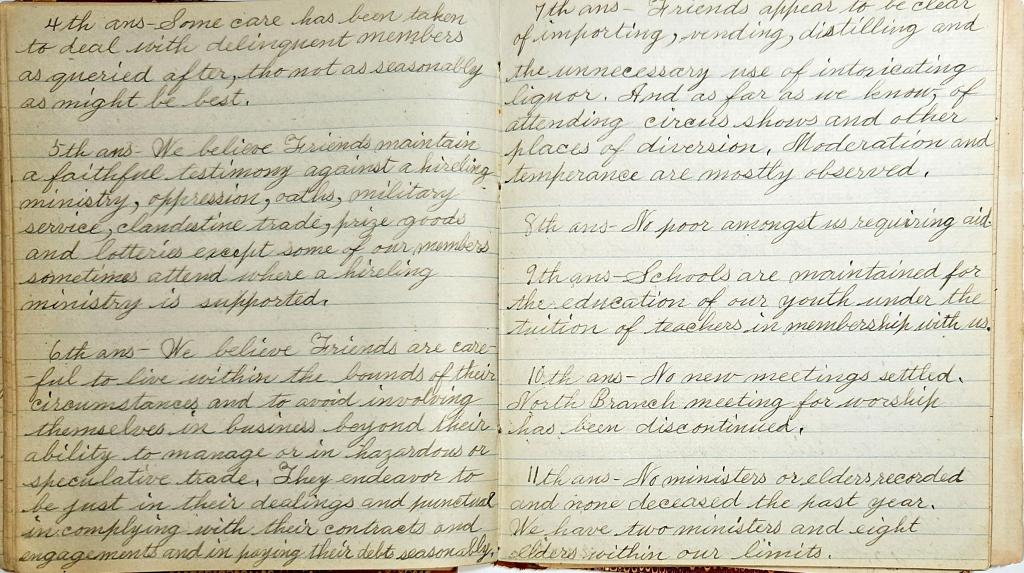 4th ans- Some care has been taken
to deal with delinquent members
as queried after, tho not as seasonably
as might be best.
5th ans- We believe Friends maintain
a faithful testimony against a hireling
ministry, oppression, oaths, military
service, clandestine trade, prize goods
and lotteries except some of our members
sometimes attend where a hireling
ministry is supported.
6th ans- We believe Friends are care-
ful to live within the bounds of their
circumstances and to avoid involving
themselves in business beyond their
ability to manage or in hazardous or
speculative trade. They endeavor to
be just in their dealings and punctual
in complying with their contracts and
engagements and in paying their debt seasonably.
7th ans- Friends appear to be clear
of importing, vending, distilling and
the unnecessary use of intoxicating
liquor. And as far as we know, of
attending circus shows and other
places of diversion. Moderation and
temperance are mostly observed.
8th ans- No poor amongst us requiring aid.
9th ans- Schools are maintained for
the education of our youth under the
tuition of teachers in membership with us.
10th ans- No new meetings settled.
North Branch meeting for worship
has been discontinued.
11th ans- No ministers or elders recorded
and none deceased the past year.
We have two ministers and eight
elders within our limits.